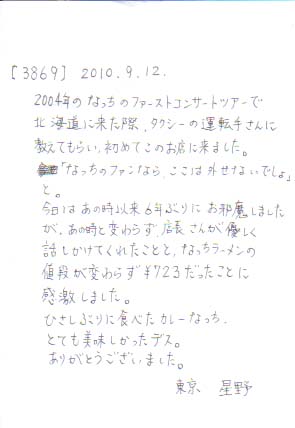 [3869] 2010.9.12.
2004年のなっちのファーストコンサートツアーで
北海道に来た際、タクシーの運転手さんに
教えてもらい、初めてこのお店に来ました。
「なっちのファンなら、ここは外せないでしょ」
と。
今日はあの時以来6年ぶりにお邪魔しました
が、あの時と変わらず、店長さんが優しく
話しかけてくれたことと、なっちラーメンの
値段が変わらず¥723だったことに
感激しました。
ひさしぶりに食べたカレーなっち、
とても美味しかったデス。
ありがとうございました。
東京 星野